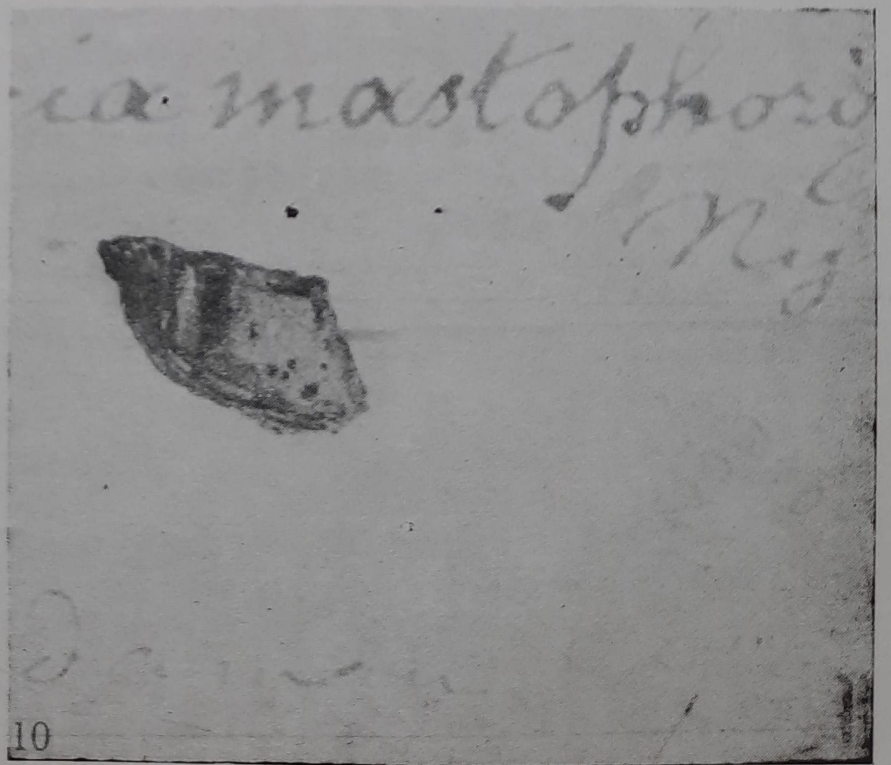 ia mastophori
Ny
10